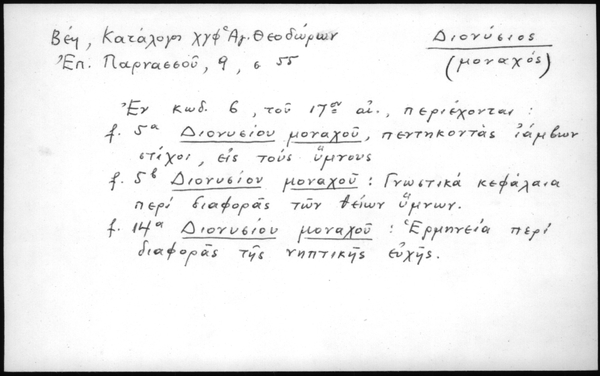 Βέη, Κατάλογος χγφ Ἁγ. Θεοδώρων
Διονύσιος
Ἐπ. Παρνασσοῦ, 9, σ 55
(μοναχός)
Ἐν κωδ. 6, τοῦ 17ου αἰ., περιέχονται:
f. 5a Διονυσίου μοναχοῦ, πεντηκοντὰς ἰάμβων
στίχοι, εἰς τοὺς ὕμνους
f. 5b Διονυσίου μοναχοῦ: Γνωστικά κεφάλαια
περί διαφορᾶς τῶν θείων ὕμνων.
f. 14a Διονυσίου μοναχοῦ: Ἑρμηνεία περί
διαφορᾶς τῆς νηπτικῆς εὐχῆς.